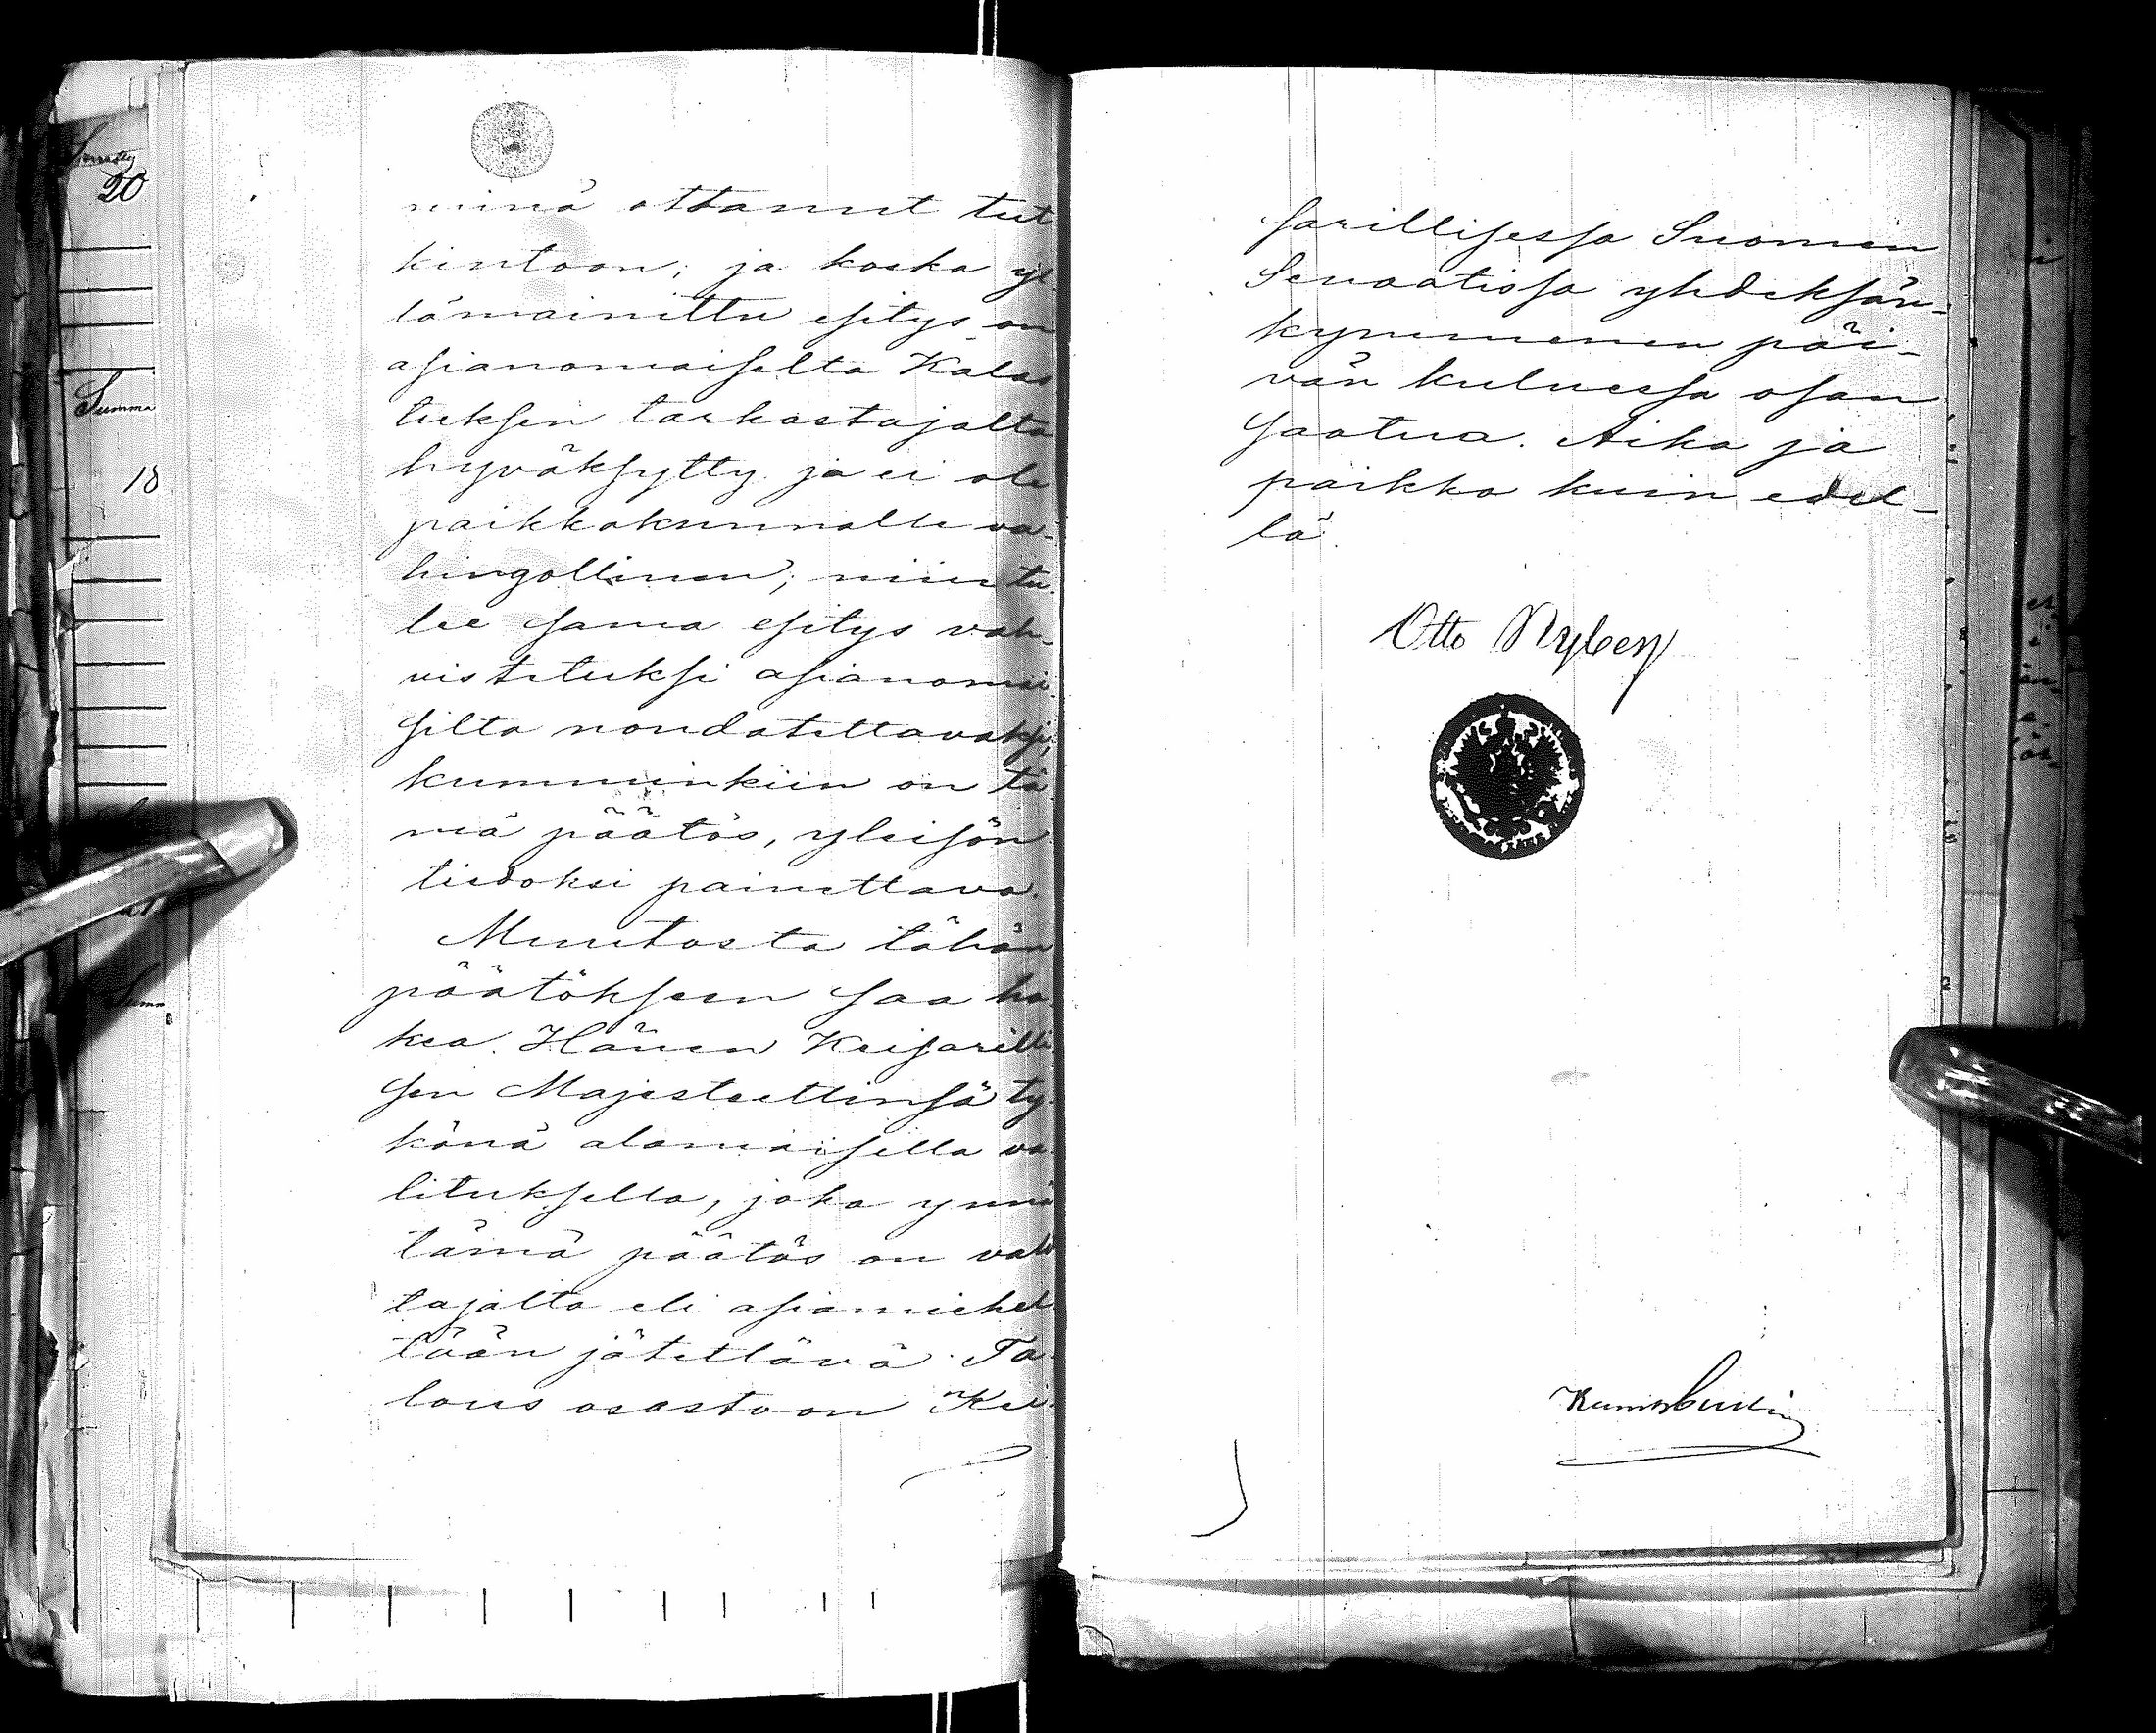 minä ottanut tut
kintoon; ja koska yl-
lämainittu esitys on
asianomaiselta Kalas
tuksen tarkastajalta
hyväksytty ja ei ole
paikkakunnalle va-
hingollinen; niin tu-
lee sama esitys vah-
vistetuksi asianomai-
silta noudatettavaksi;
kumminkiin on tä-
mä päätös, yleisön
tiedoksi painettava.
Muutosta tähän
päätökseen saa ha-
kea Hänen Keisarilli-
sen Majesteettinsä ty-
könä alamaisella va-
lituksella, joka ynnä
tämä päätös on valit
tajalta eli asiamiehel-
tään jätettävä Ta-
lous osastoon Kei-
sarillisessa Suomen
Senaatissa yhdeksän-
kymmenen päi-
vän kuluessa osan
saatua. Aika ja
paikka kuin edel-
lä.
Otto Nyberg
Summa
20
18